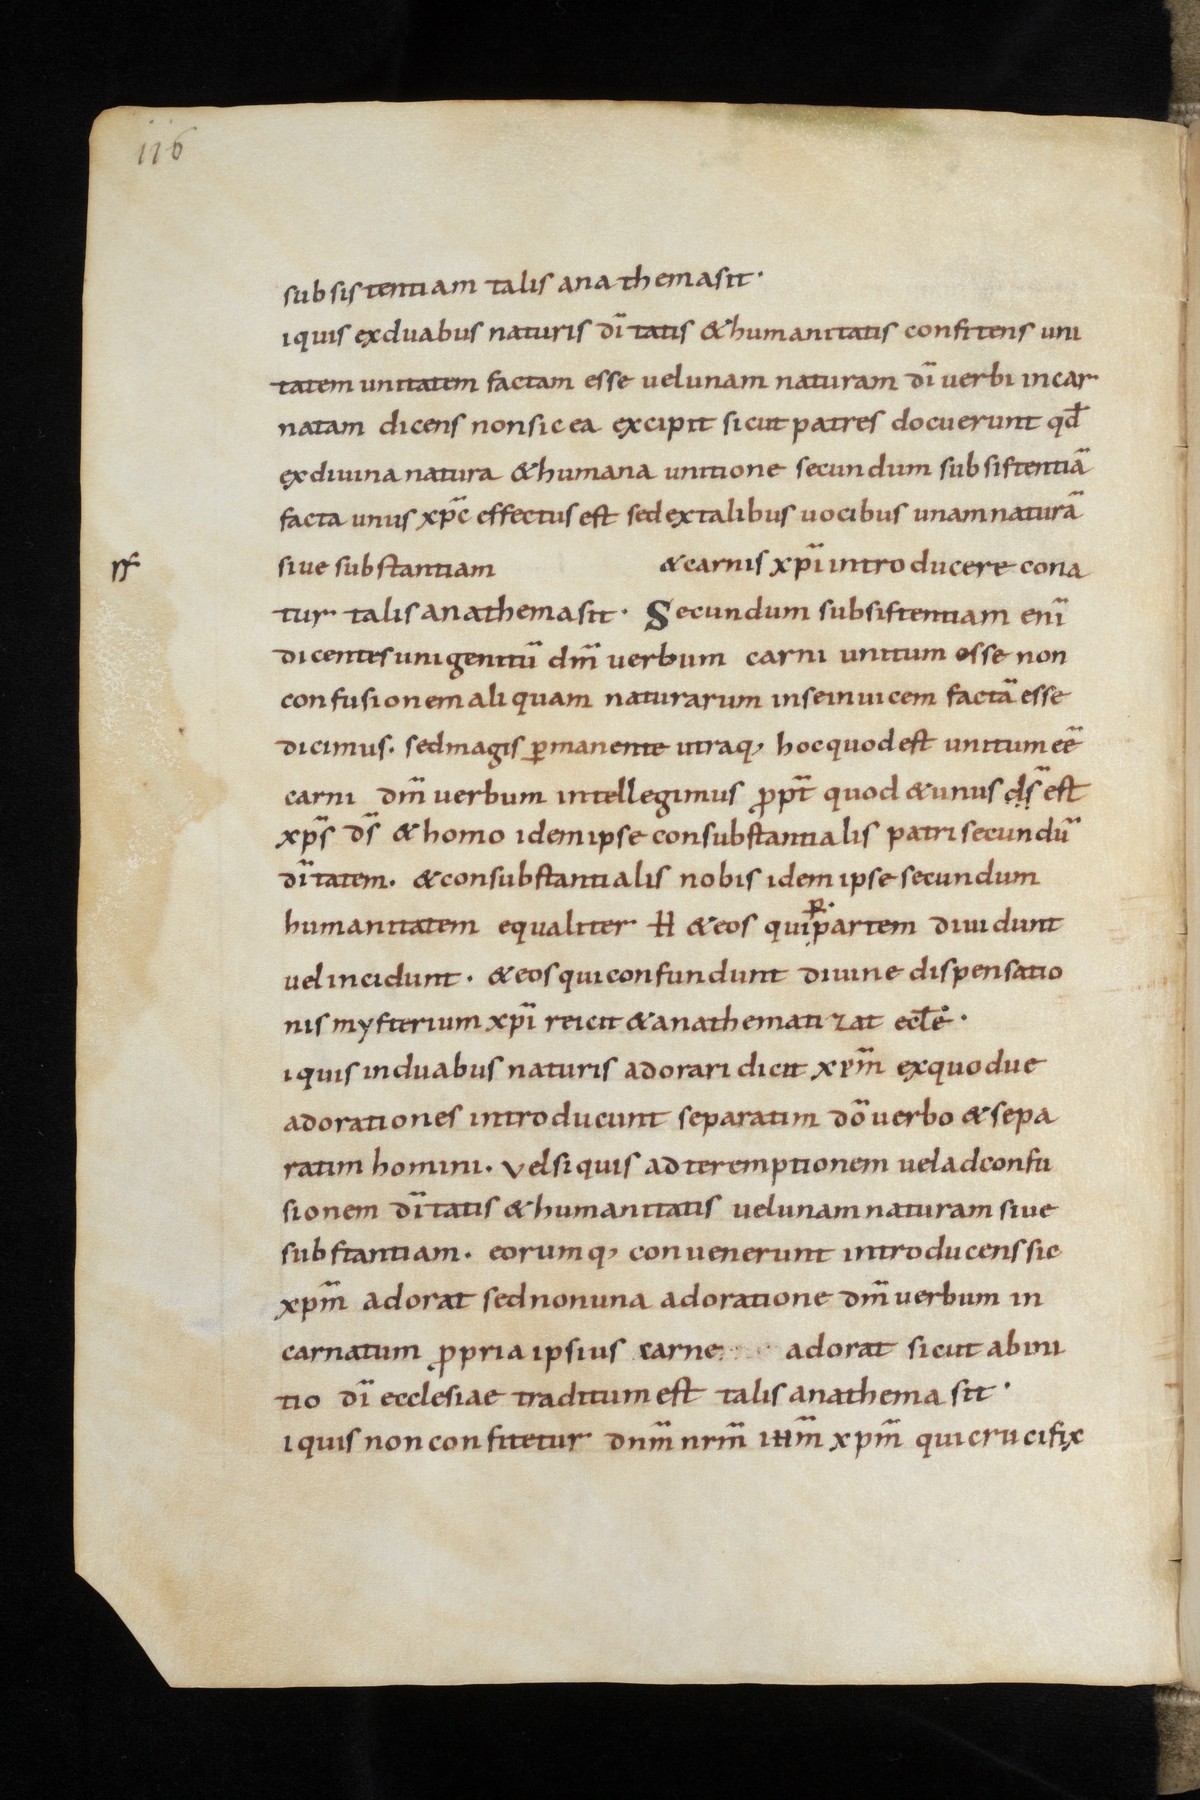 116
subsistentiam talis anathema sit·
iquis ex duabus naturis dī tatis & humanitatis confitens uni
tatem unitatem factam esse vel unam naturam dī verbi incar
natam dicens non sic ea excipit sicut patres docuerunt qđ
ex divina natura & humana unitione secundum subsistentiā
facta unus xp̄c effectus est sed ex talibus vocibus unam naturā
sive substantiam & carnis xp̄i introducere cona
tur talis anathema sit· Secundum subsistentiam enī
dicentes unigenitū dm̄ verbum carni unitum esse non
confusionem aliquam naturarum in se invicem factā esse
dicimus. sed magis ꝑmanente utraq, hoc quod est unitum eē
carni dm̄ verbum intellegimus ꝓpt̄ quod & unus ds̄ est
xp̄s ds̄ & homo idem ipse consubstantialis patri secundū
dī tatem. & consubstantialis nobis idem ipse secundum
humanitatem equaliter H & eos qui ꝑ partem dividunt
vel incidunt. & eos qui confundunt divine dispensatio
nis mysterium xp̄i reicit & anathematizat eclē·
iquis in duabus naturis adorari dicit xp̄m ex quo due
adorationes introducunt separatim dō verbo & sepa
ratim homini. vel si quis ad teremptionem vel ad confu
sionem dī tatis & humanitatis vel unam naturam sive
substantiam. eorum q, convenerunt introducens sic
xp̄m adorat sed non una adoratione dm̄ verbum in
carnatum ꝓpria ipsius carne adorat sicut ab ini
tio dī ecclesiae traditum est talis anathema sit·
iquis non confitetur dnm̄ nrm̄ ihm̄ xpm̄ qui crucifix